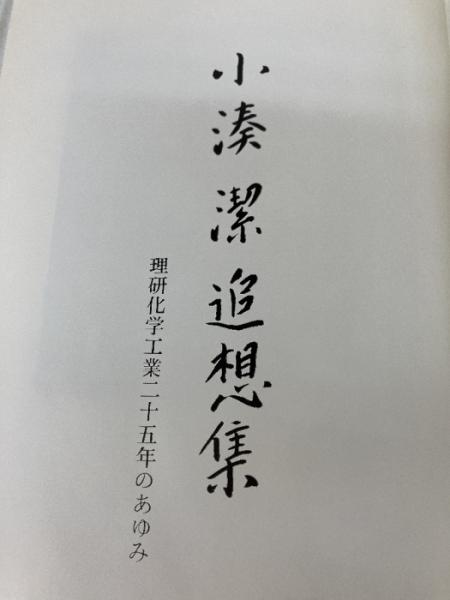 小湊潔追想集
理研化学工業二十五年のあゆみ